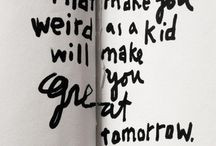 that make you
weird as a kid
will make
you
great
tomorrow.